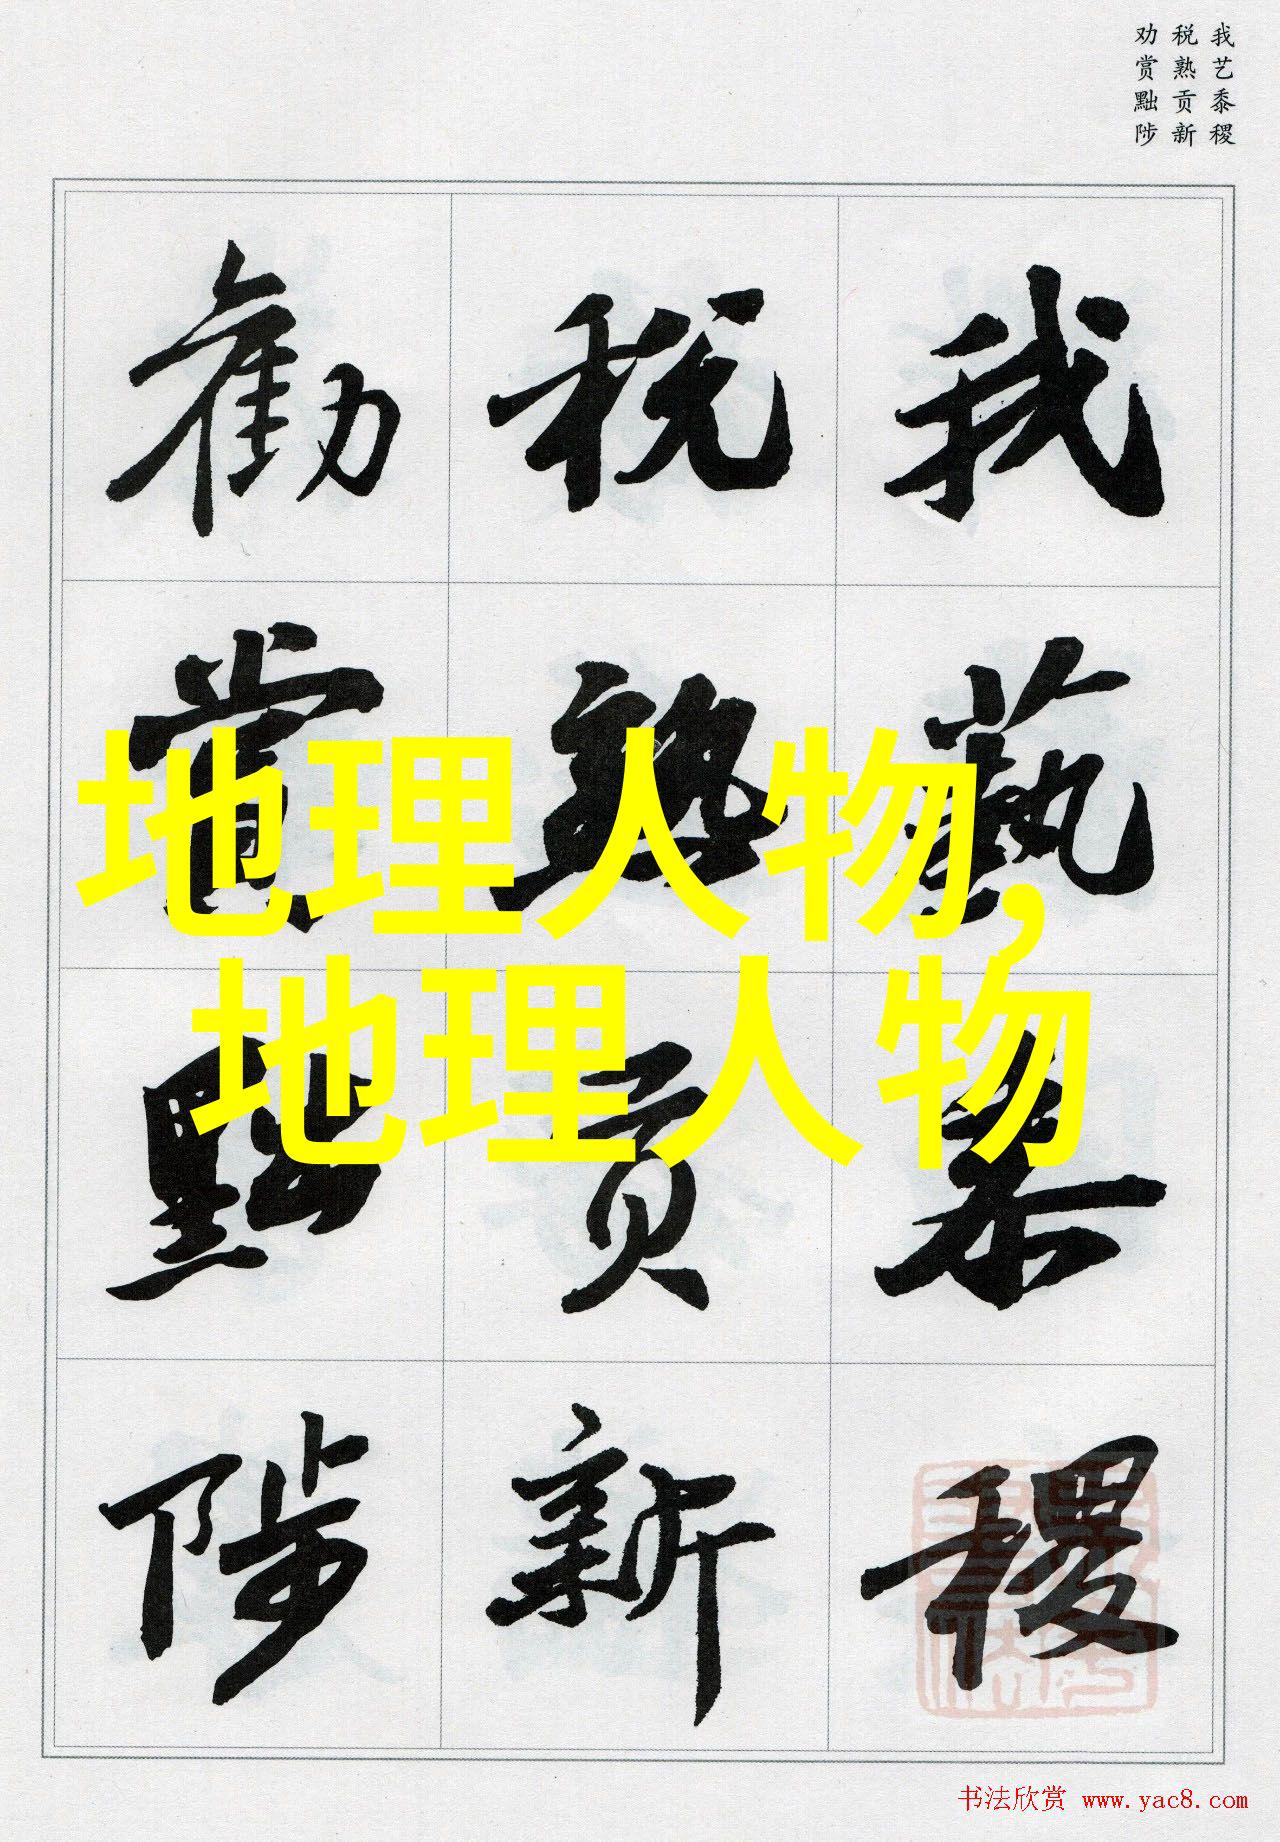 我艺黍稷
税熟贡新
劝赏黜陟
我藝黍稷
税熟贡新
勸賞黜陟
地理人物,
地理人物
书法欣赏 www.yac8.com